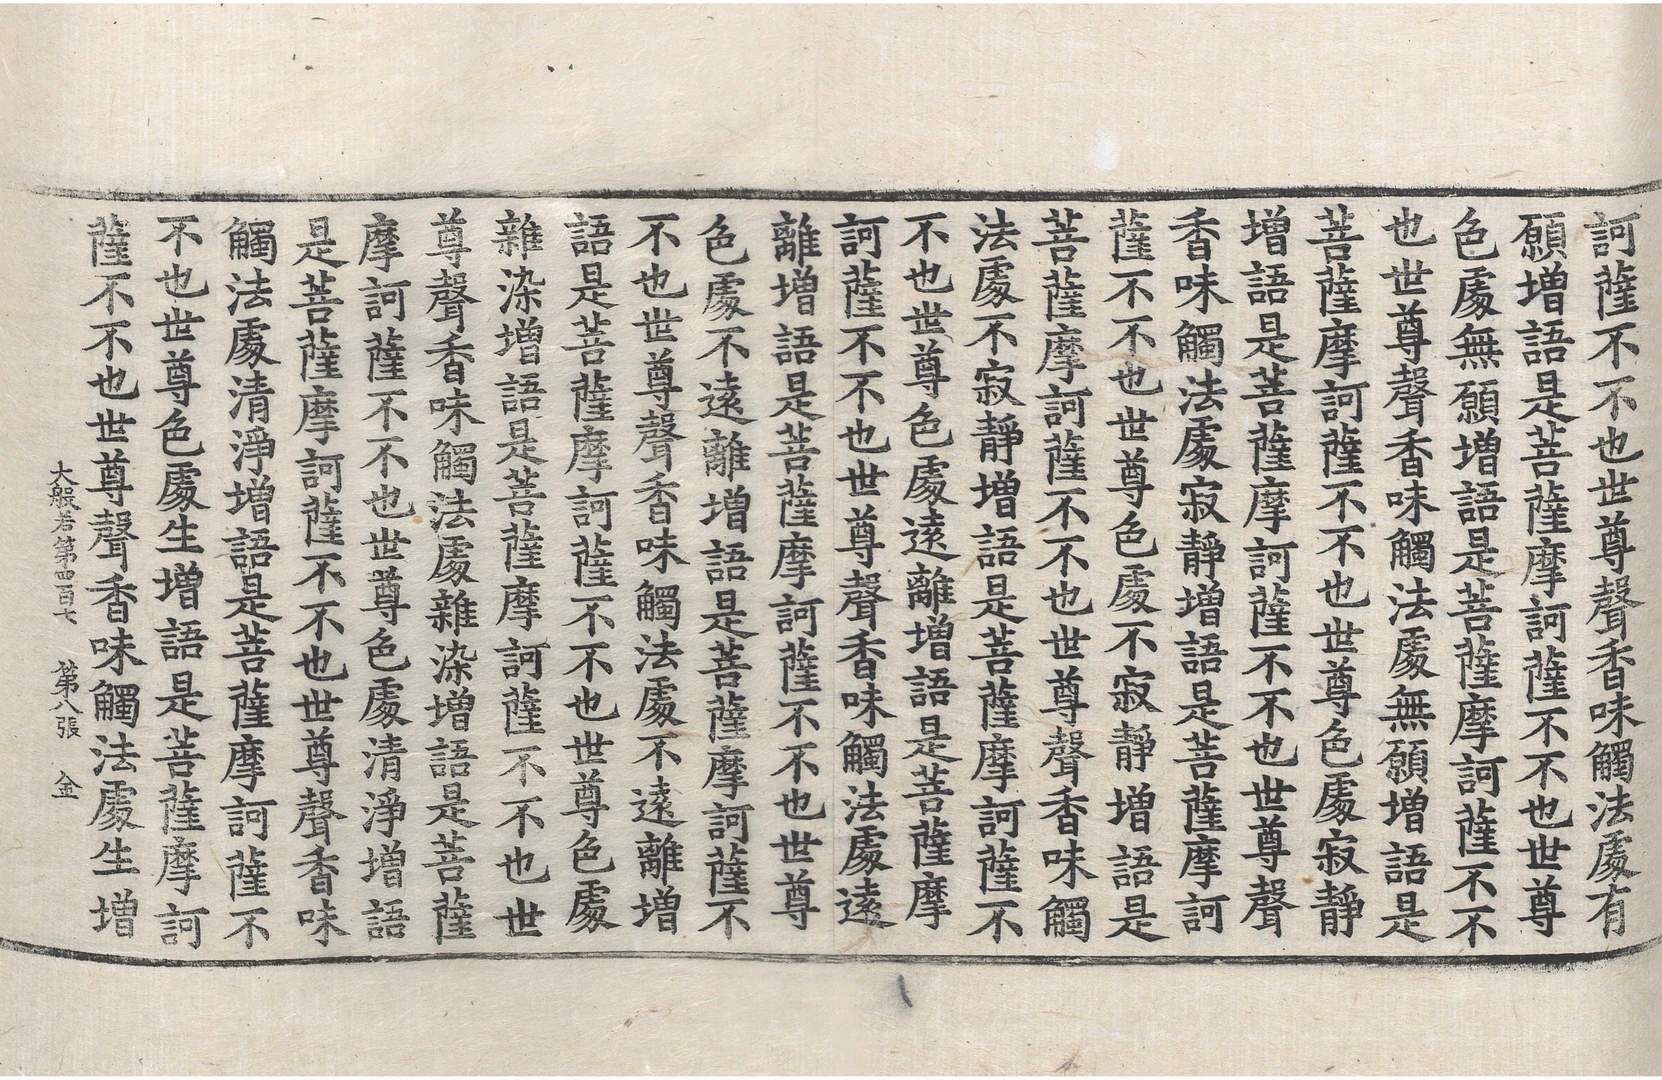 訶薩不不也世尊聲香味觸法處有
願增語是菩薩摩訶薩不不也世尊
色處無願增語是菩薩摩訶薩不不
也世尊聲香味觸法處無願增語是
菩薩摩訶薩不不也世尊色處寂靜
增語是菩薩摩訶薩不不也世尊聲
香味觸法處寂靜增語是菩薩摩訶
薩不不也世尊色處不寂靜增語是
菩薩摩訶薩不不也世尊聲香味觸
法處不寂靜增語是菩薩摩訶薩不
不也世尊色處遠離增語是菩薩摩
訶薩不不也世尊聲香味觸法處遠
離增語是菩薩摩訶薩不不也世尊
色處不遠離增語是菩薩摩訶薩不
不也世尊聲香味觸法處不遠離增
語是菩薩摩訶薩不不也世尊色處
雜染增語是菩薩摩訶薩不不也世
尊聲香味觸法處雜染增語是菩薩
摩訶薩不不也世尊色處清淨增語
是菩薩摩訶薩不不也世尊聲香味
觸法處清淨增語是菩薩摩訶薩不
不也世尊色處生增語是菩薩摩訶
薩不不也世尊聲香味觸法處生增
大般若第四百七 第八張 金